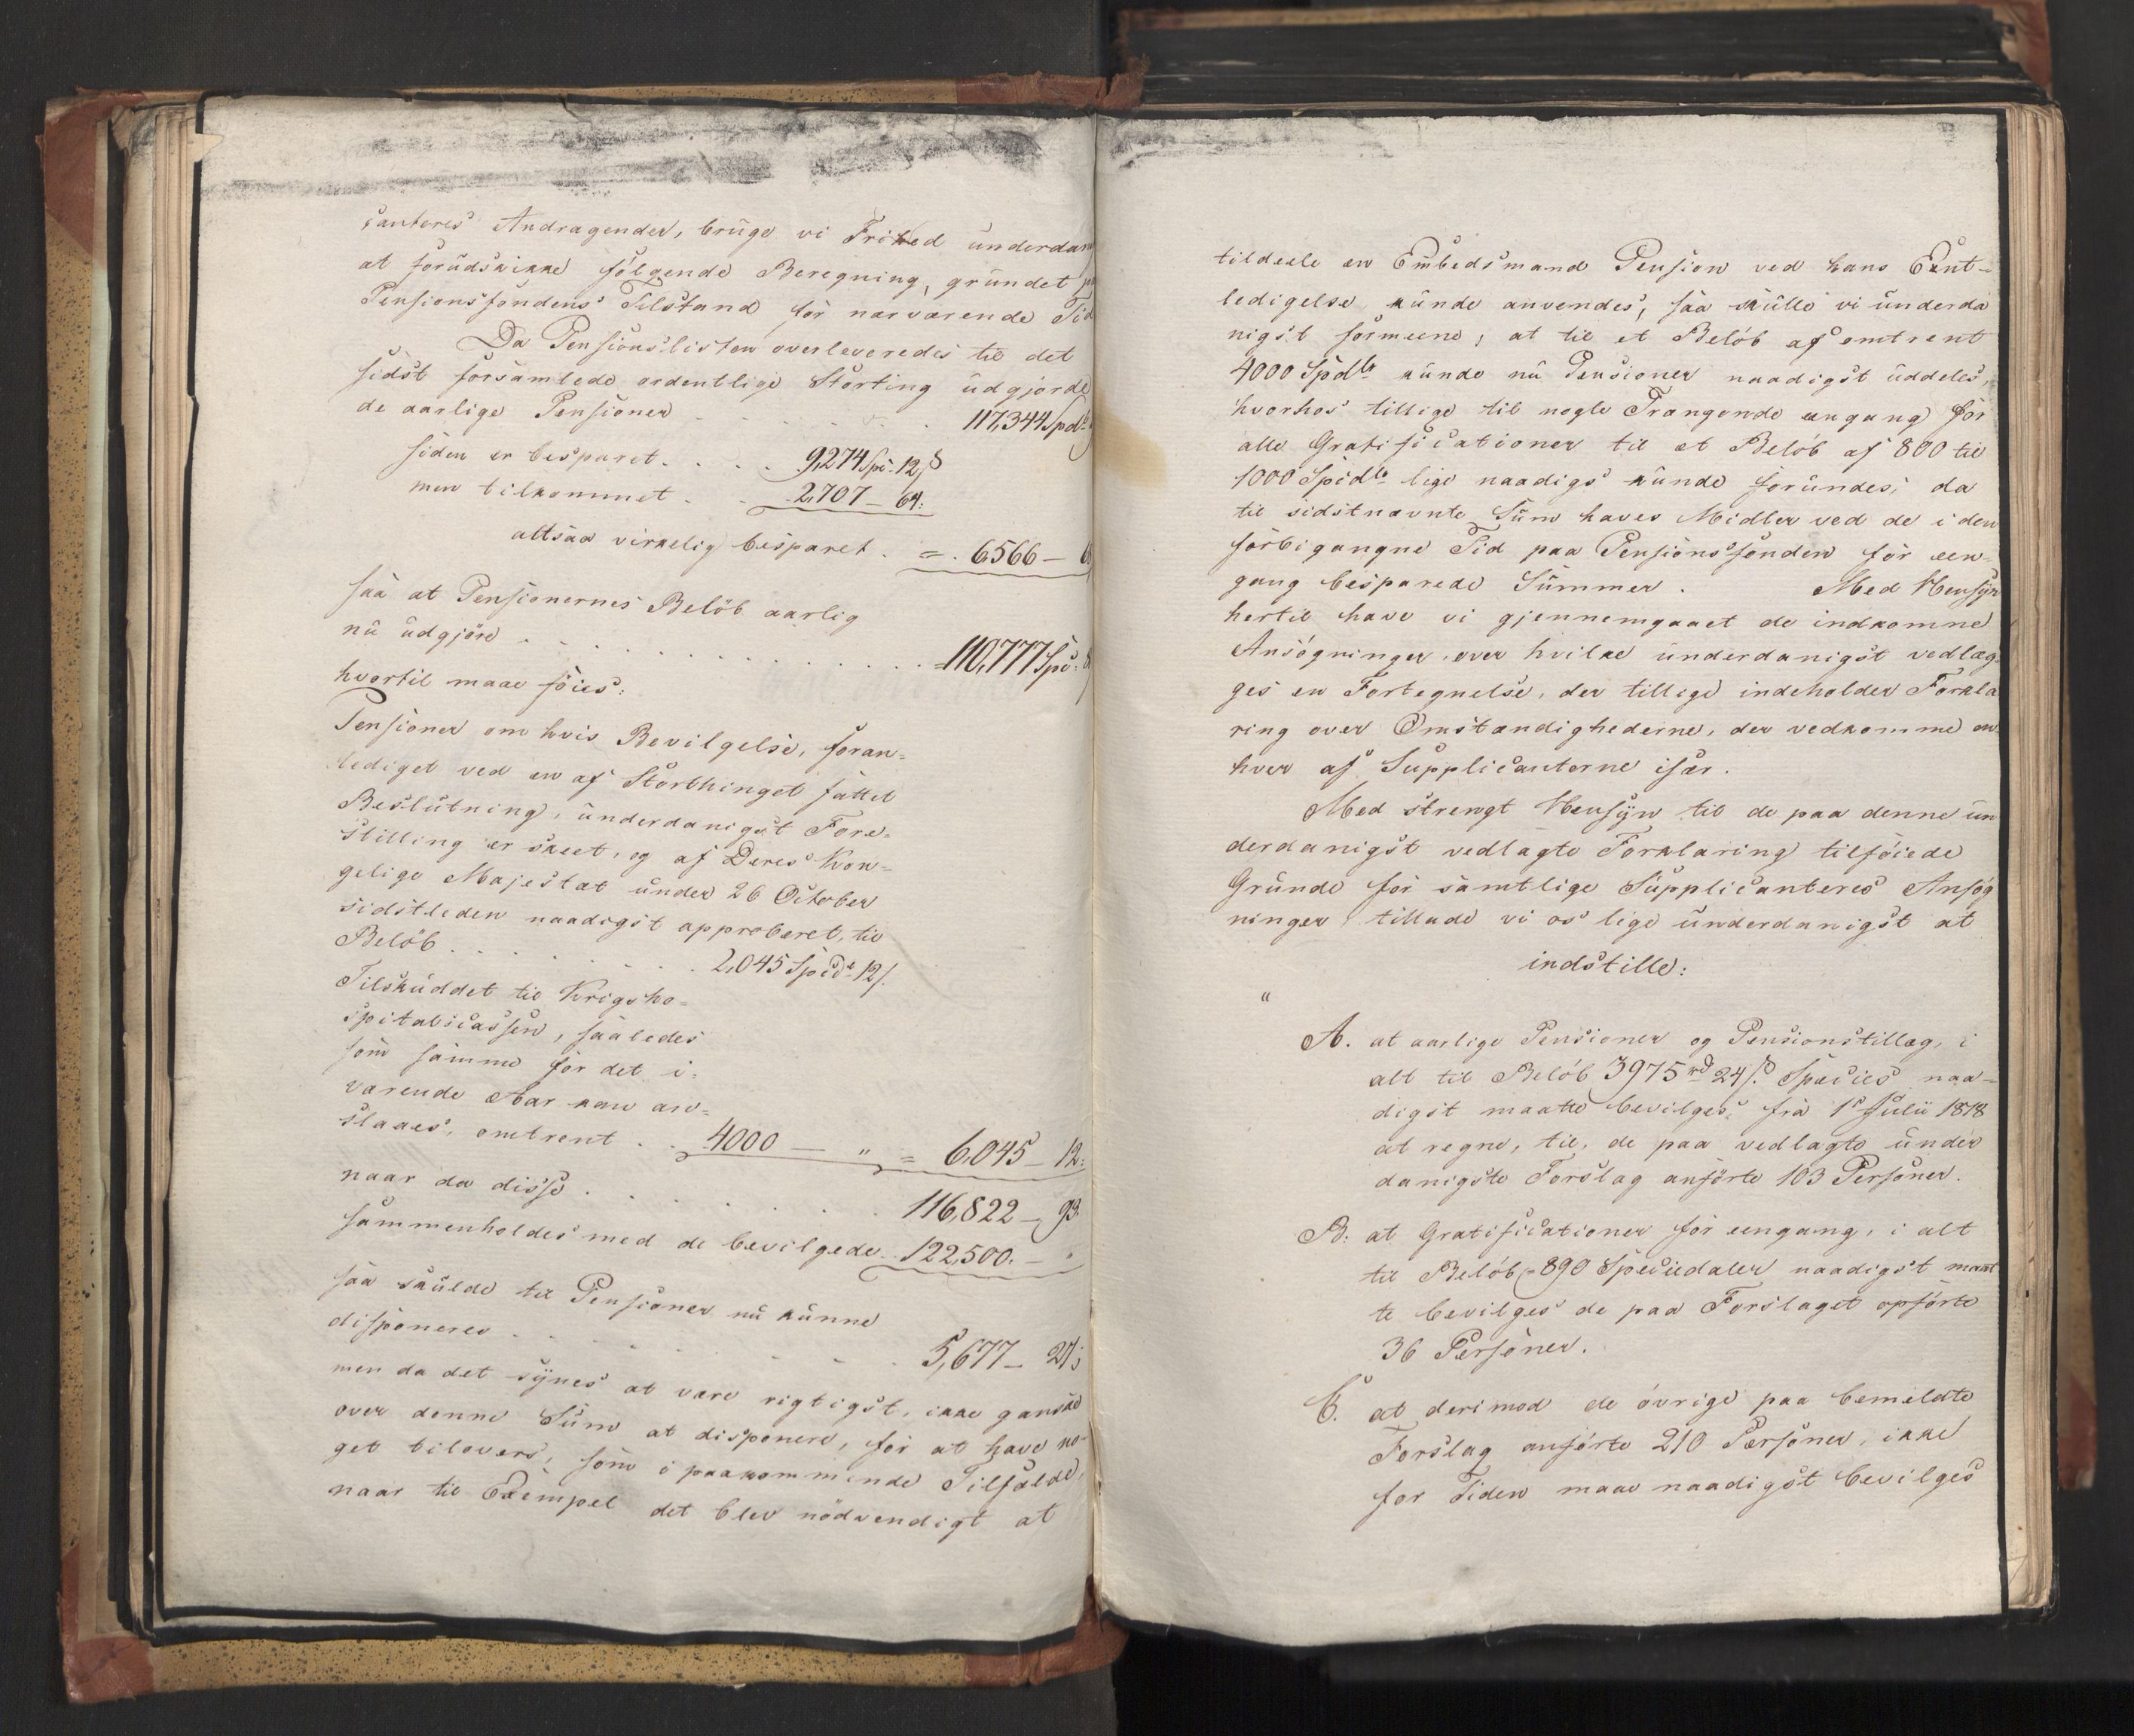 canteres Andragender, bruge vi Frihed underdan
at forudskikke følgende Beregning, grundet paa
Pensionsfondens Tilstand for nærværende Tid
Da Pensionslisten overleveredes til det
sidst forsamlede ordentlige Storting udgjorde
de aarlige Pensioner . . . . . 117,344 Spdlr
siden er besparet . . . . 9,274 Spd. 12 s
men tilkommet . . . 2,707 – 64:
altsaa virkelig besparet . = . 6566 –
saa at Pensionernes Beløb aarlig
nu udgjøre . . . . . . . . . . = 110,777 Spd:
hvortil maae föies:
Pensioner om hvis Bevilgelse, foran-
lediget ved en af Storthinget fattet
Beslutning, underdanigst Fore-
stilling er skeet, og af Deres Kon-
gelige Majestæt under 26 October
sidstleden naadigst approberet, til
Beløb . . . . . . . 2,045 Spd. 12 s.
Tilskuddet til Krigsho-
spitalscassen, saaledes
som samme for det i-
værende Aar kan an-
slaaes, omtrent . . 4000 – " = 6,045 – 12:
naar da disse . . . . . . . 116,822 – 93.
sammenholdes med de bevilgede . 122,500. – "
saa skulde til Pensioner nu kunne
disponeres . . . . . . . . 5,677 – 27;
men da det synes at være rigtigst, ikke ganske
over denne Sum at disponere, for at have no-
get tilovers, som i paakommende Tilfælde,
naar til Exempel det blev nödvendigt at
tildeele en Embedsmand Pension ved hans Ent-
ledigelse kunde anvendes, saa skulle vi underda
nigst formeene, at til et Beløb af omtrent
4000 Spdlr kunde nu Pensioner naadigst uddeles,
hvorhos tillige til nogle Trængende engang for
alle Gratificationer til et Beløb af 800 til
1000 Spidlr lige naadigs kunde forundes, da
til sidstnævnte Sum haves Midler ved de i den
forbigangne Tid paa Pensionsfonden for een-
gang besparede Summer . Med Hensyn
hertil have vi gjennemgaaet de indkomne
Ansøgninger, over hvilke underdanigst vedlæg-
ges en Fortegnelse, der tillige indeholder Forkla
ring over Omstændighederne, der vedkomme en-
hver af Supplicanterne især.
Med strengt Hensyn til de paa denne un
derdanigst vedlagte Forklaring tilföiede
Grunde for samtlige Supplicanteres Ansøg
ninger tillade vi os lige underdanigst at
indstille:
"
A. at aarlige Pensioner og Pensionstillæg, i
alt til Beløb 3975 rd 24 s. Species naa-
digst maatte bevilges, fra 1 Julii 1818
at regne, til, de paa vedlagte under
danigste Forslag anførte 103 Personer.
B: at Gratificationer for eengang, i alt
til Beløb = 890 Speciedaler naadigst maat
te bevilges de paa Forslaget opførte
36 Personer.
C. at derimod de øvrige paa bemeldte
Forslag anførte 210 Personer, ikke
for Tiden maae naadigst bevilges